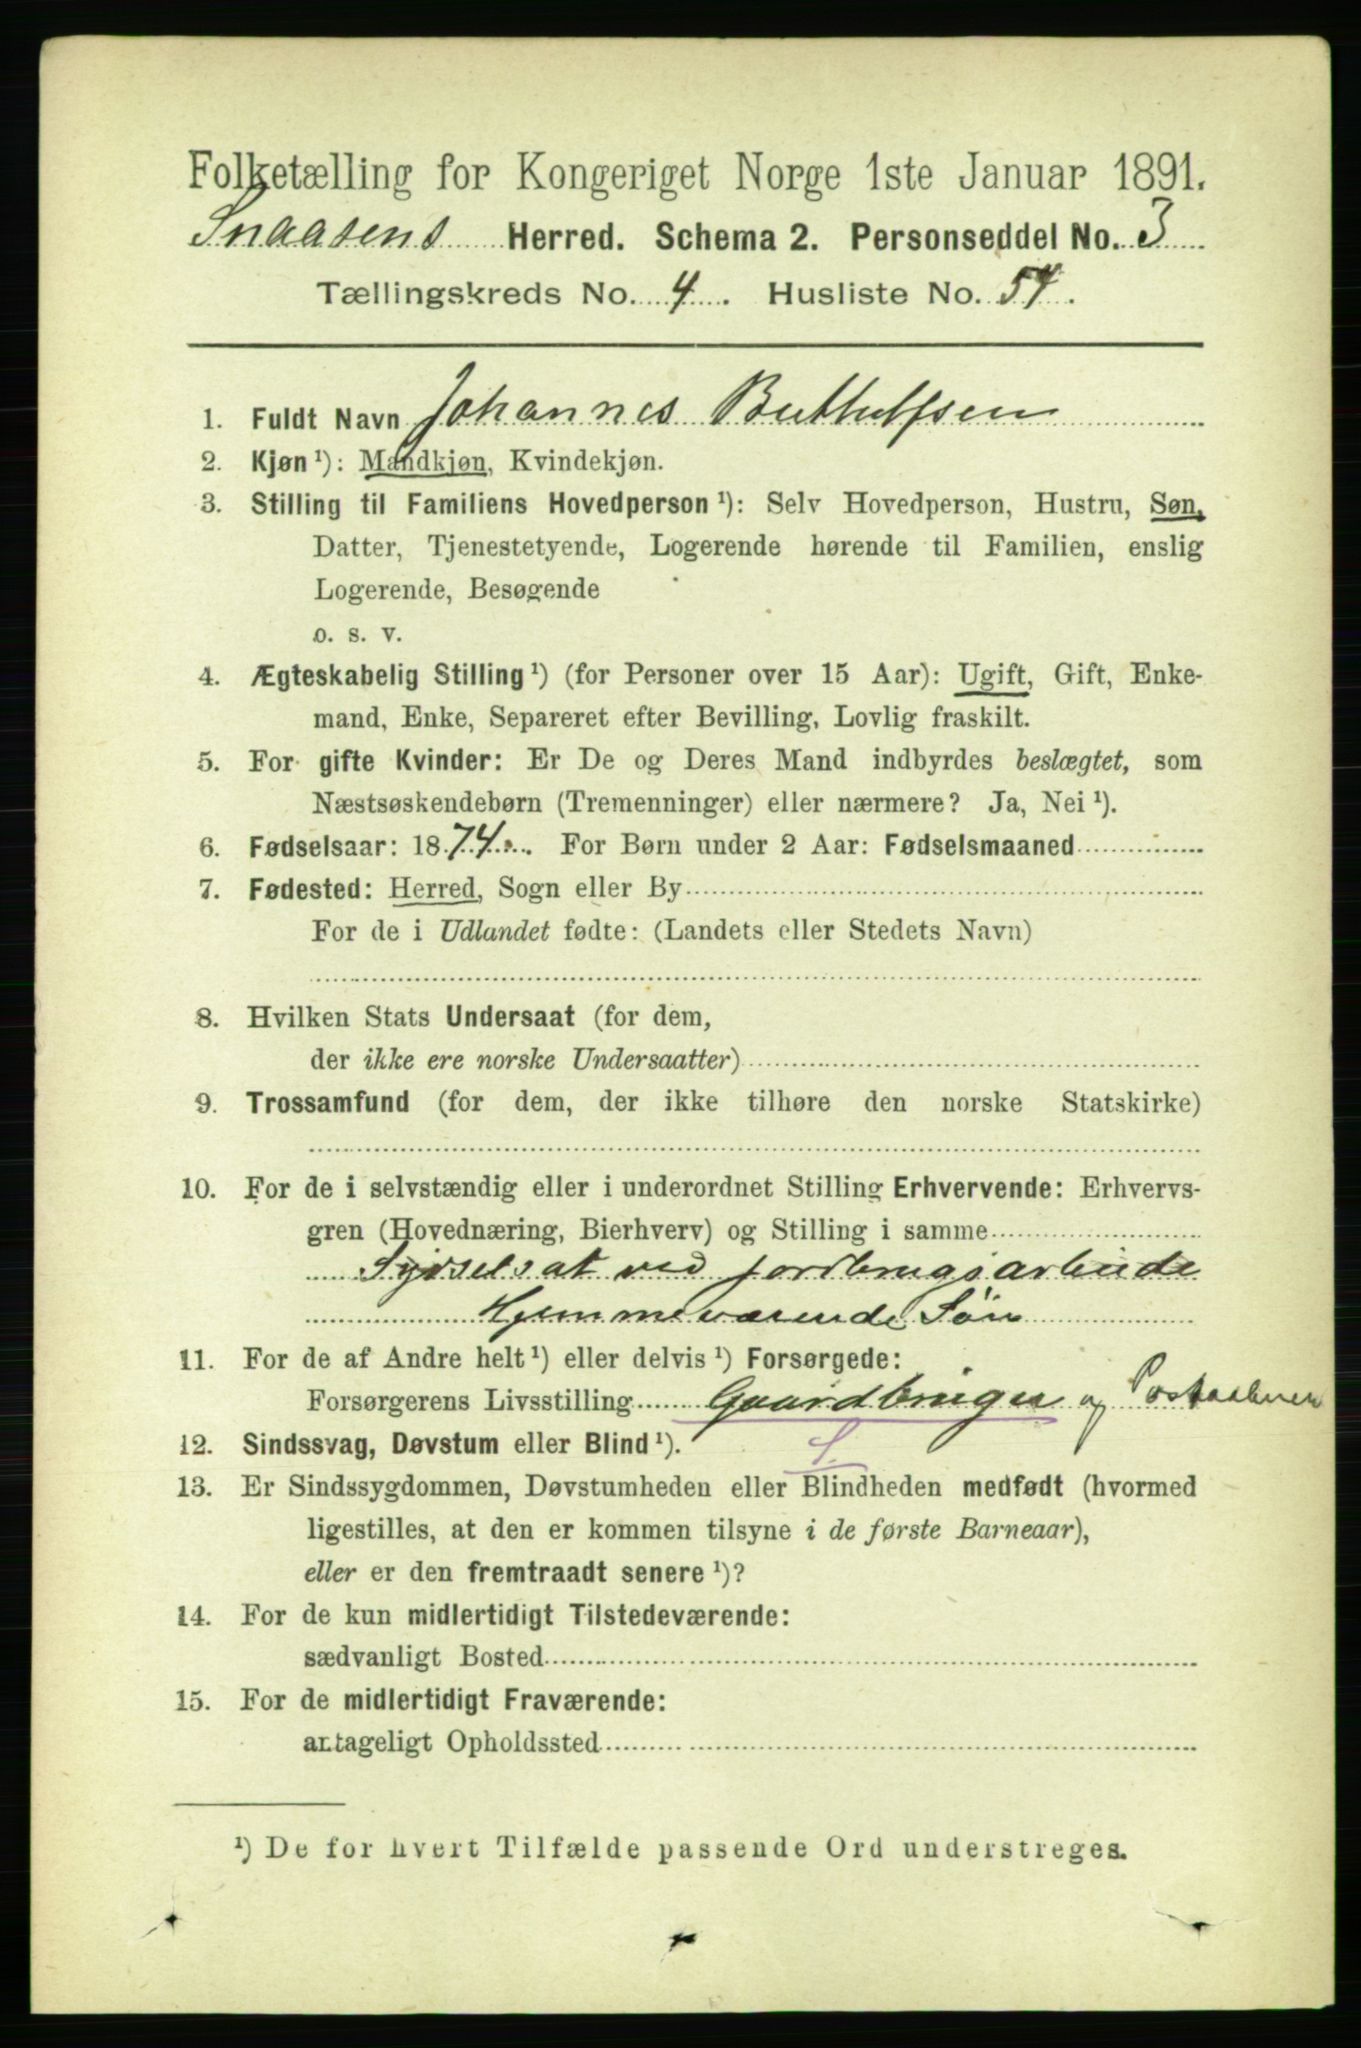 Folketælling for Kongeriget Norge 1ste Januar 1891.
Snaasens Herred. Schema 2. Personseddel No. 3
Tællingskreds No. 4. Husliste No. 54.
1. Fuldt Navn Johannes Buttulfsen
2. Kjøn ¹): Mandkjøn, Kvindekjøn.
3. Stilling til Familiens Hovedperson ¹): Selv Hovedperson, Hustru, Søn,
Datter, Tjenestetyende, Logerende hørende til Familien, enslig
Logerende, Besøgende
o. s. v.
4. Ægteskabelig Stilling ¹) (for Personer over 15 Aar): Ugift, Gift, Enke-
mand, Enke, Separeret efter Bevilling, Lovlig fraskilt.
5. For gifte Kvinder: Er De og Deres Mand indbyrdes beslægtet, som
Næstsøskendebørn (Tremenninger) eller nærmere? Ja, Nei ¹).
6. Fødselsaar: 1874. For Børn under 2 Aar: Fødselsmaaned
7. Fødested: Herred, Sogn eller By
For de i Udlandet fødte: (Landets eller Stedets Navn)
8. Hvilken Stats Undersaat (for dem,
der ikke ere norske Undersaatter)
9. Trossamfund (for dem, der ikke tilhøre den norske Statskirke)
10. For de i selvstændig eller i underordnet Stilling Erhvervende: Erhvervs-
gren (Hovednæring, Bierhverv) og Stilling i samme
Sysselsat ved jordbrugsarbeide
Hjemmeværende Søn
11. For de af Andre helt ¹) eller delvis ¹) Forsørgede:
Forsørgerens Livsstilling Gaardbruger og Postaabner
12. Sindssvag, Døvstum eller Blind ¹). S.
13. Er Sindssygdommen, Døvstumheden eller Blindheden medfødt (hvormed
ligestilles, at den er kommen tilsyne i de første Barneaar),
eller er den fremtraadt senere ¹)?
14. For de kun midlertidigt Tilstedeværende:
sædvanligt Bosted
15. For de midlertidigt Fraværende:
antageligt Opholdssted
¹) De for hvert Tilfælde passende Ord understreges.